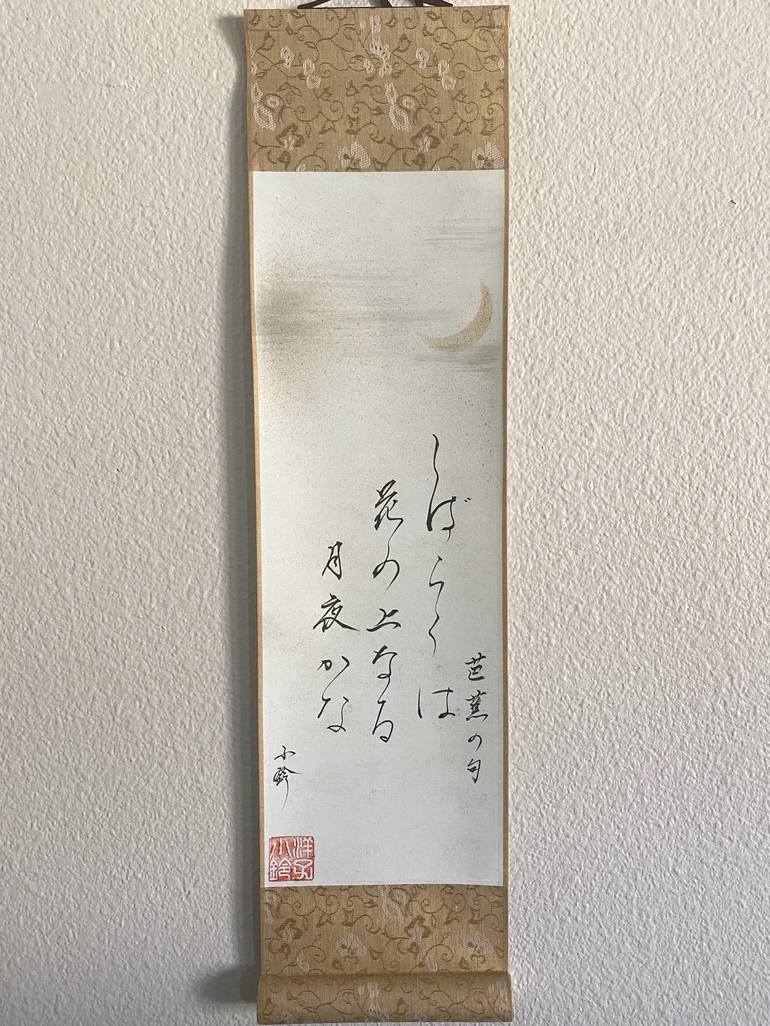 芭蕉の句
しばらくは
花の上なる
月夜かな
小鈴
洋子
小鈴